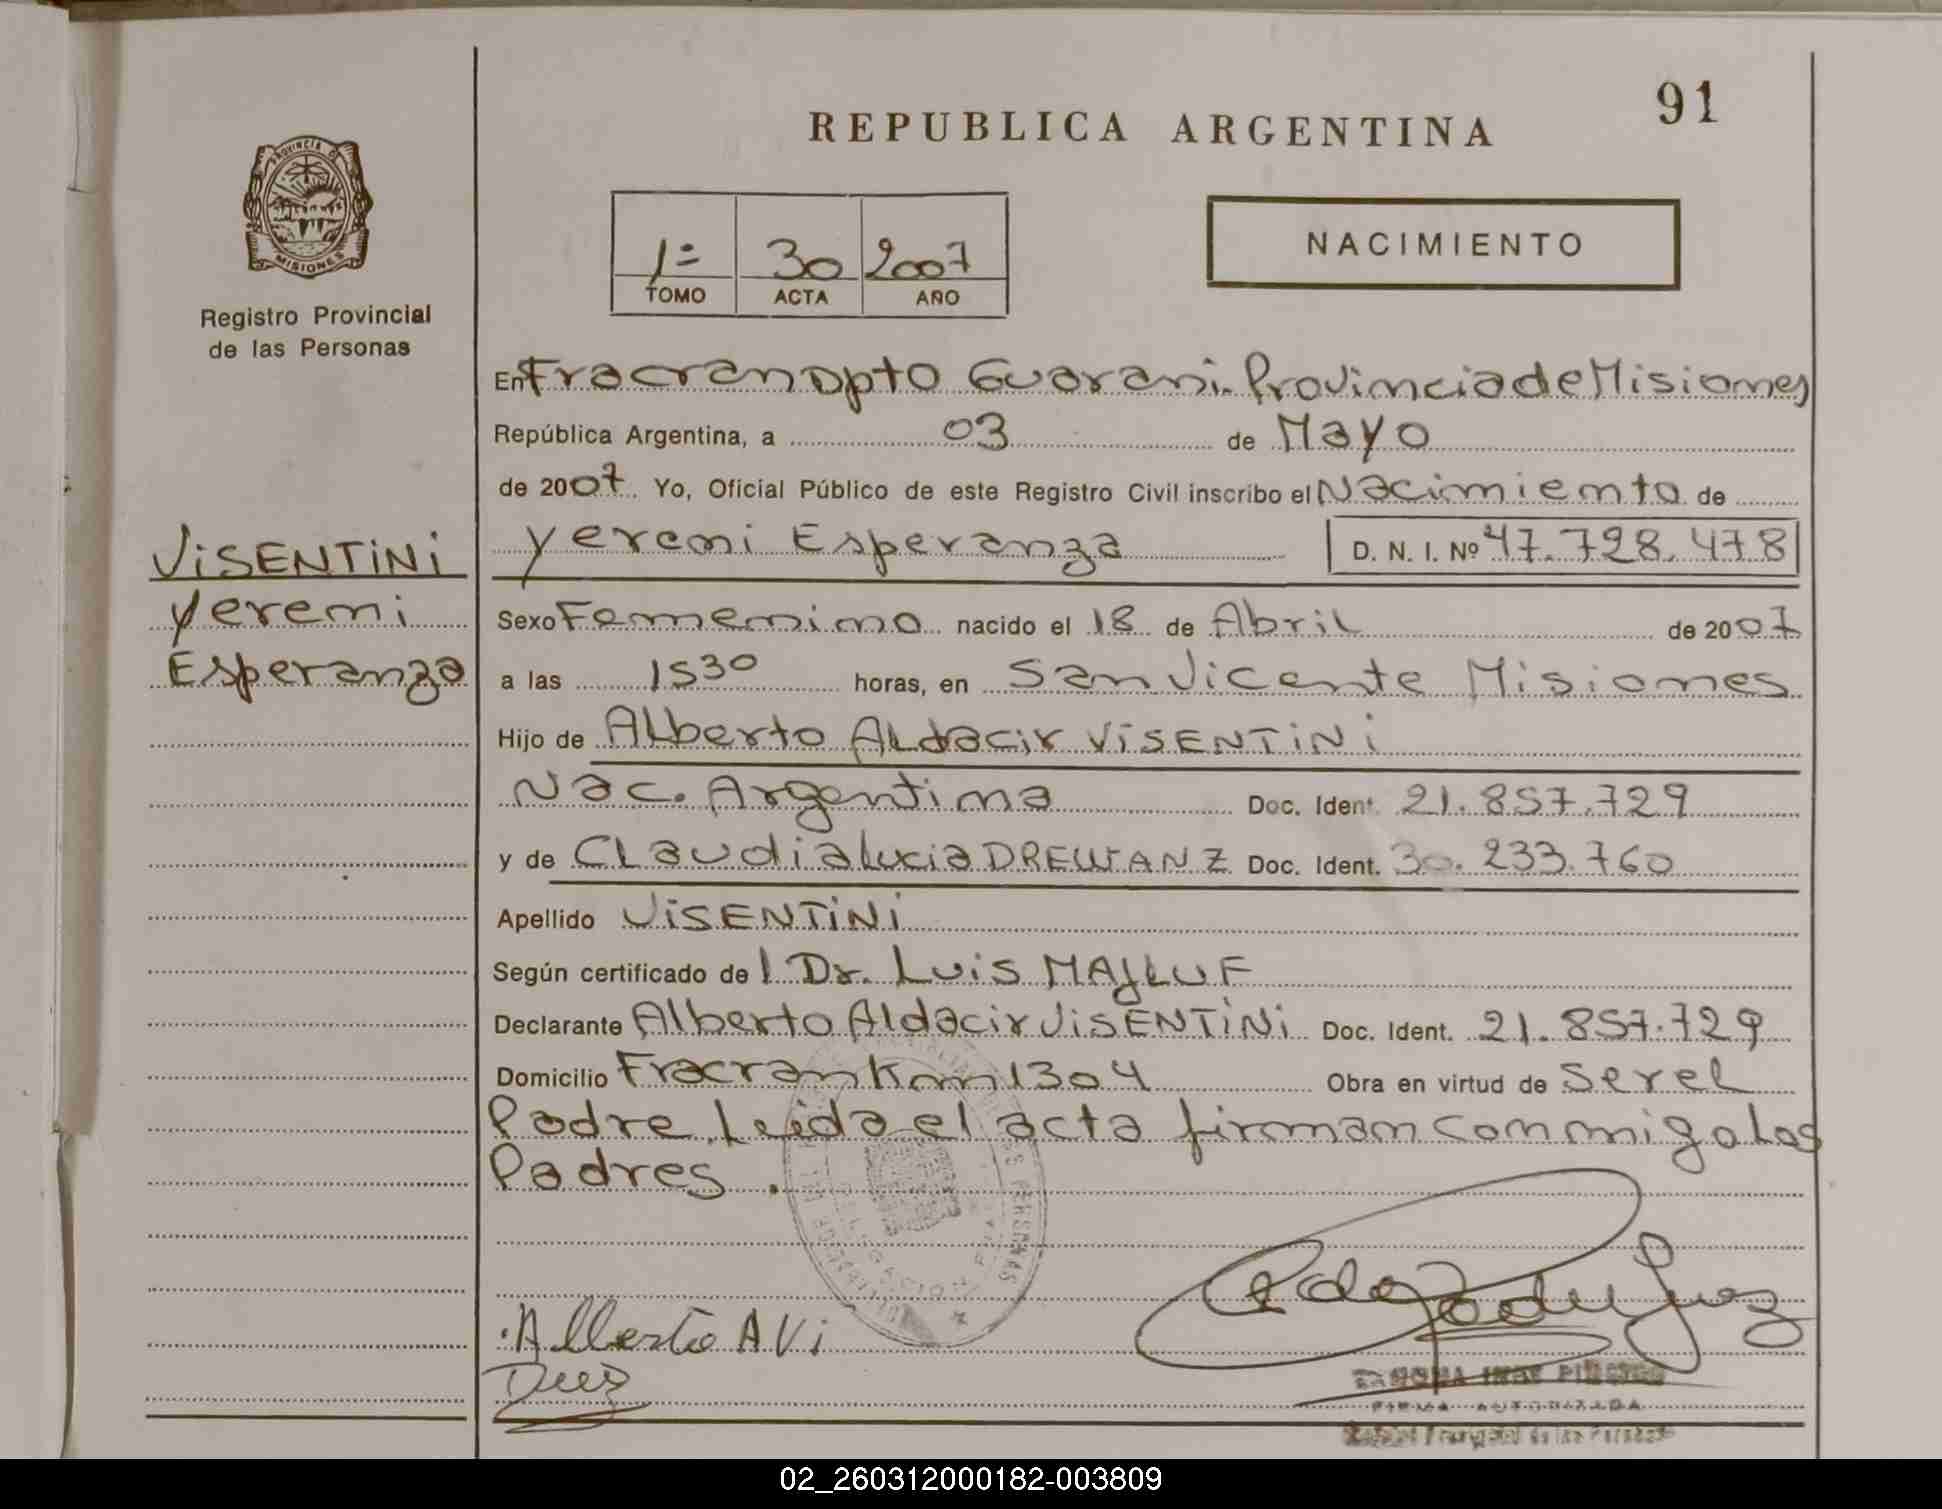 91
REPUBLICA ARGENTINA
PROVINCIA D
MISIONES
Registro Provincial
de las Personas
1= 30 2007
TOMO ACTA AÑO
NACIMIENTO
En Fracran Dpto Guarani. Provincia de Misiones
República Argentina, a 03 de Mayo
de 2007. Yo, Oficial Público de este Registro Civil inscribo el Nacimiento de
Yeremi Esperanza D. N. I. Nº 47.728.478
VISENTINI
Yeremi
Esperanza
Sexo Femenino nacido el 18 de Abril de 2007
a las 1530 horas, en San Vicente Misiones
Hijo de Alberto Aldacir VISENTINI
Nac. Argentina Doc. Ident. 21.857.729
y de Claudia Lucia DREWANZ Doc. Ident. 30.233.760
Apellido VISENTINI
Según certificado de l Dr. Luis MAJLUF
Declarante Alberto Aldacir VISENTINI Doc. Ident. 21.857.729
Domicilio Fracran Km 1304 Obra en virtud de Ser el
Padre. Leida el acta firman conmigo Los
Padres.
PERSONAS
DELEGACION
Alberto A Vi
FIRMA AUTORIZADA
de las Personas
02_260312000182-003809